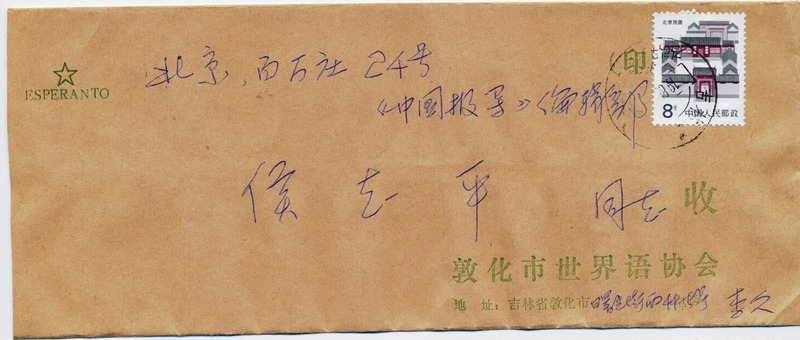 ESPERANTO
北京民居
8分 中国人民邮政
(印
北京，百万庄24号
《中国报导》编辑部
侯志平 同志 收
敦化市世界语协会
地 址：吉林省敦化市